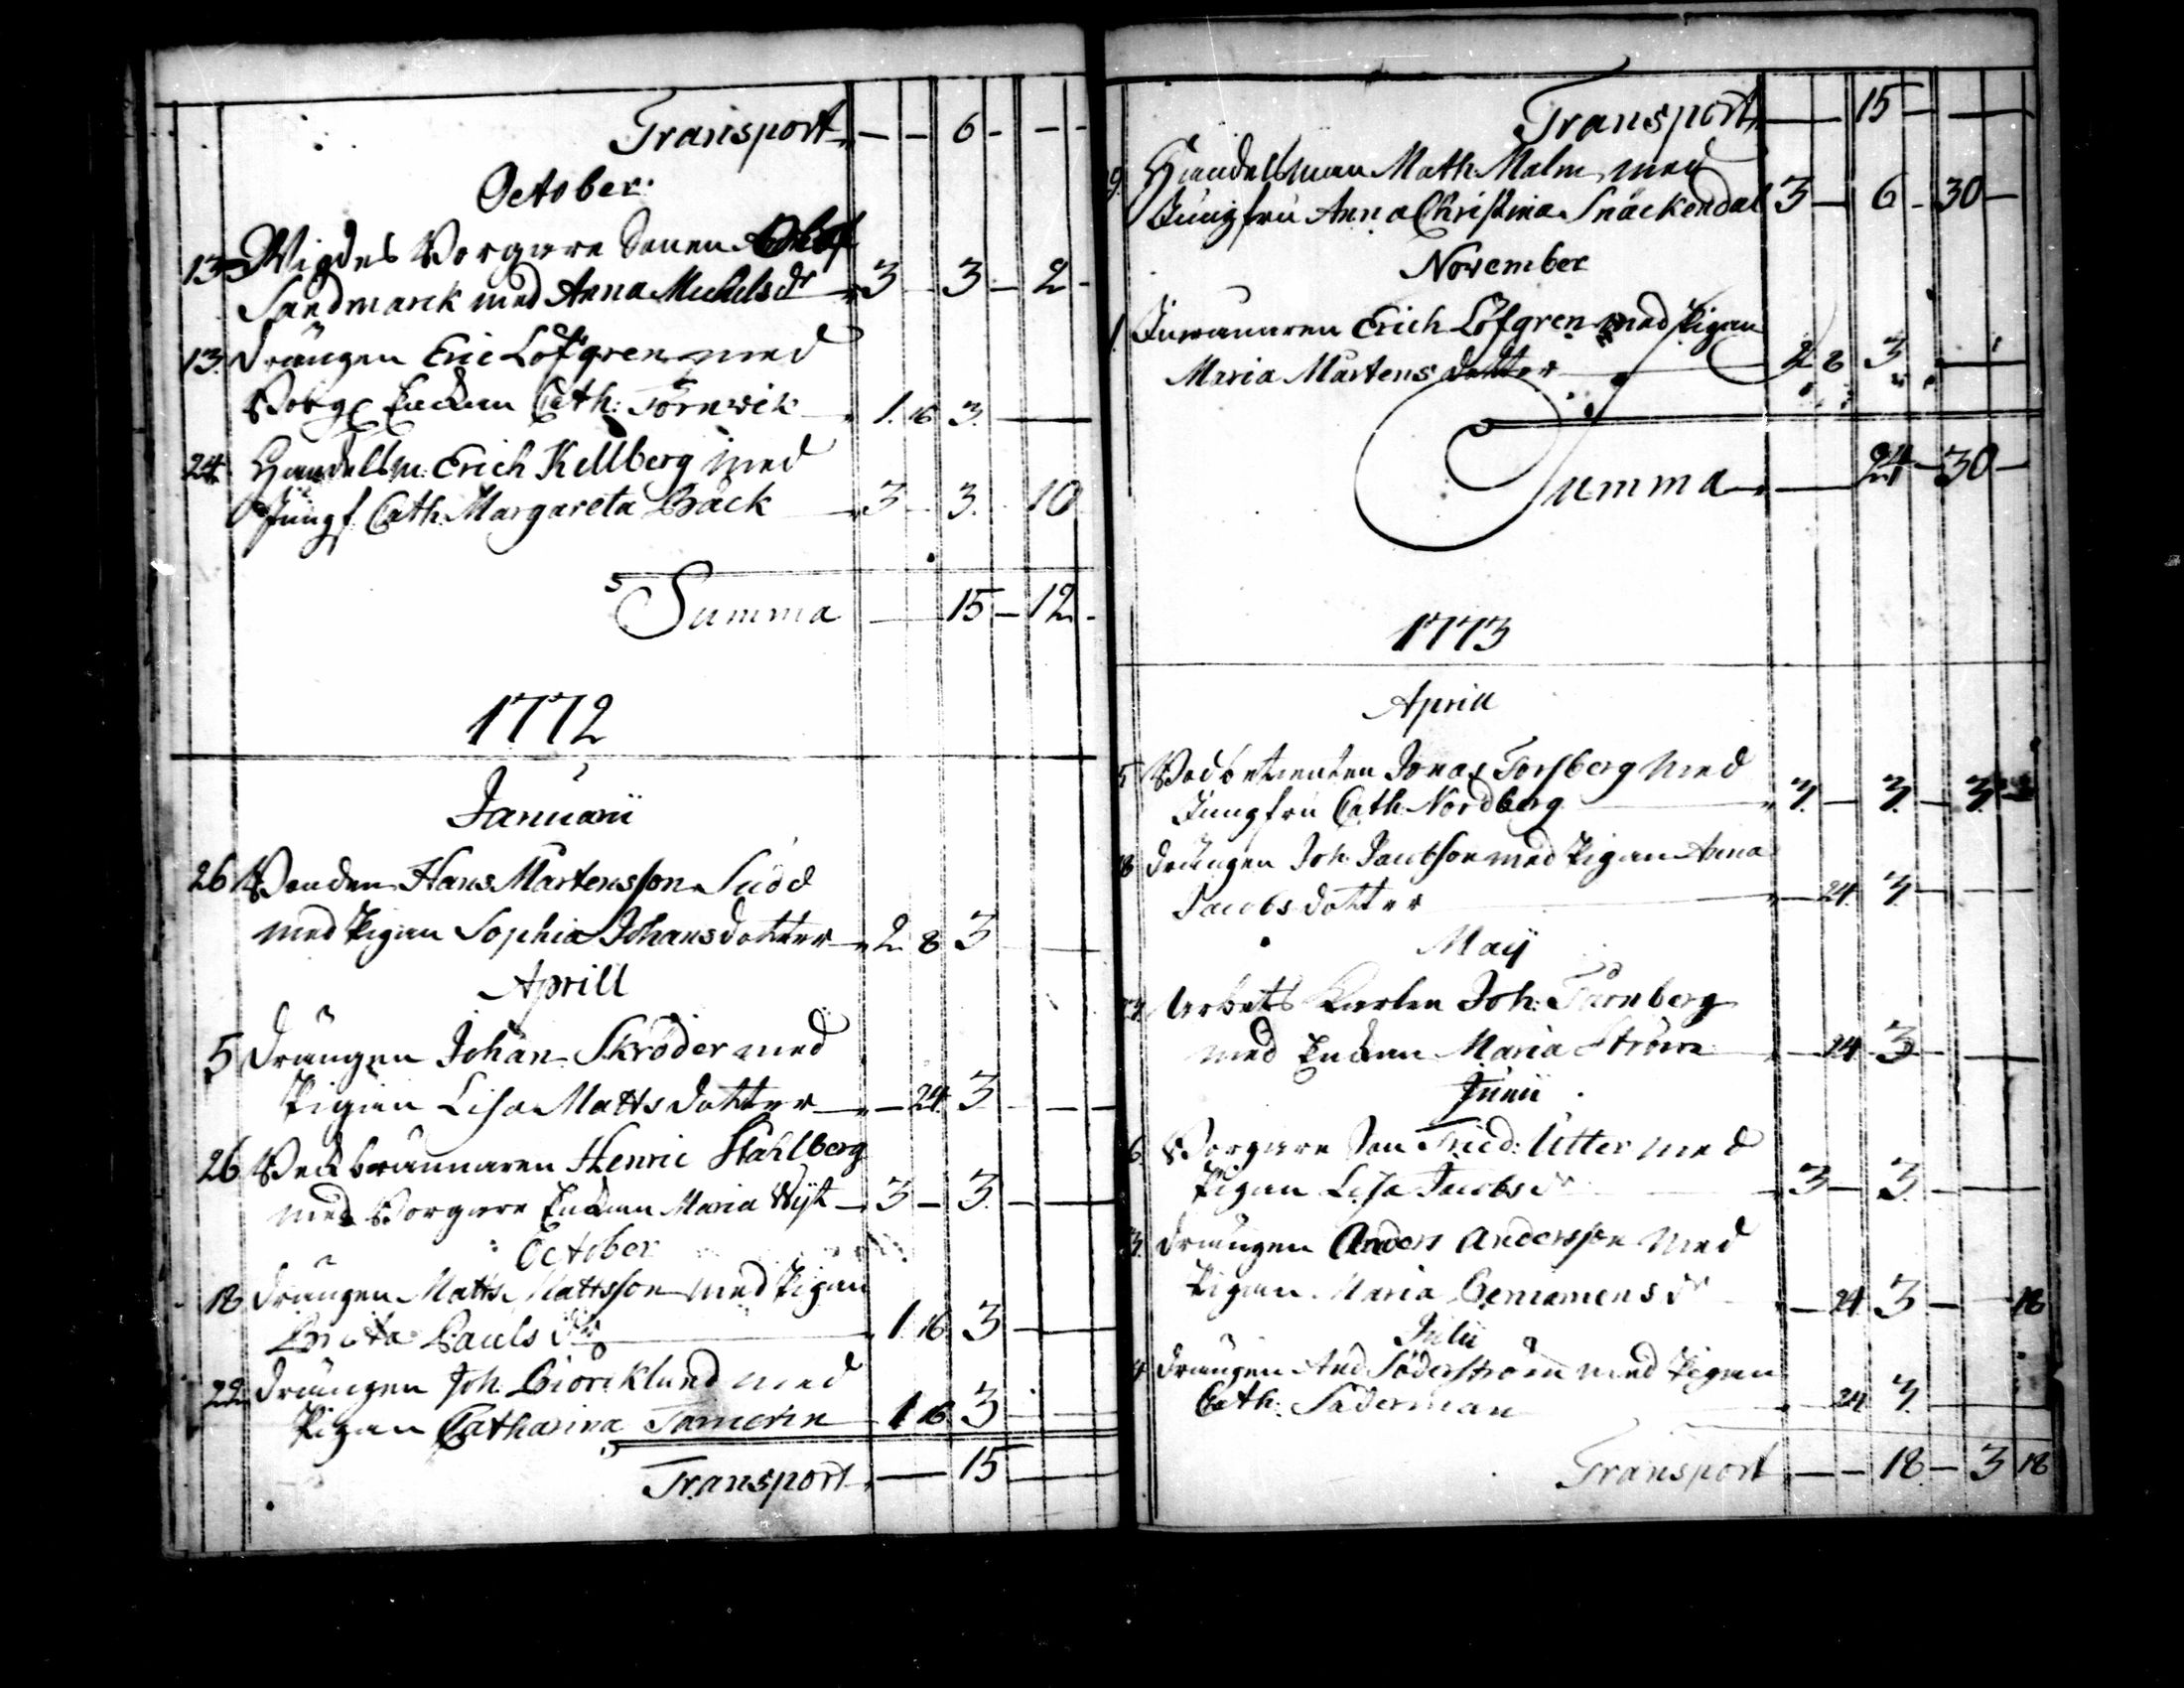 Transport — — 6 - - -
October.
13 Wigdes Borgare Sonen
Sandmarck med Anna Michelsdr 3 — 3 — 2 -
13. Drängen Eric Löfgren med
Borg. Enckan Cath: Törnwik 1. 16 3. —
24 Handelsm: Erich Kellberg med
Jungf. Cath. Margareta Bäck 3 - 3. 10
Summa — 15 — 12 -
1772
Januarii
26 Bonden Hans Mårtensson Siöö
med Pigan Sophia Johansdotter 2 8 3
Aprill
5 Drängen Johan Skröder med
Pigan Lisa Mattsdotter — 24. 3 — — —
26 Henric Ståhlberg
med Borgare Enckan Maria 3 — 3. — —
October
18 Drängen Matts Mattsson med Pigan
Brita Paulsdr 1. 16 3 — —
22. Drängen Joh. Biörcklund med
Pigan Catharina 1 16 3 — —
Transport — 15 — —
Transport — 15 — —
9. Handelsman Math. Malm med
Jungfru Anna Christina Snäckendal 3 — 6 - 30 —
November
1 Erich Löfgren med Pigan
Maria Mårtens dotter 2 8 3 —
Summa — 24 — 30 —
1773
Aprill
5 Jonas Forsberg med
Jungfru Cath. Nordberg 3. — 3. — 3.
18 Drängen Joh. Jacobsson med Pigan Anna
Jacobsdotter — 24. 3. — —
Maij
Arbets Karlen Joh:
med Enckan Maria Ström — 24 3 — —
Junii
6. Borgare Son Fried: Utter med
Pigan Lisa Jacobsdr 3 — 3. — —
Drängen Anders Andersson med
Pigan Maria Beniamensdr — 24. 3 — 18
Julii
4 Drängen And. Söderström med Pigan
Cath. Säderman 24 3. —
Transport — — 18. — 3 18